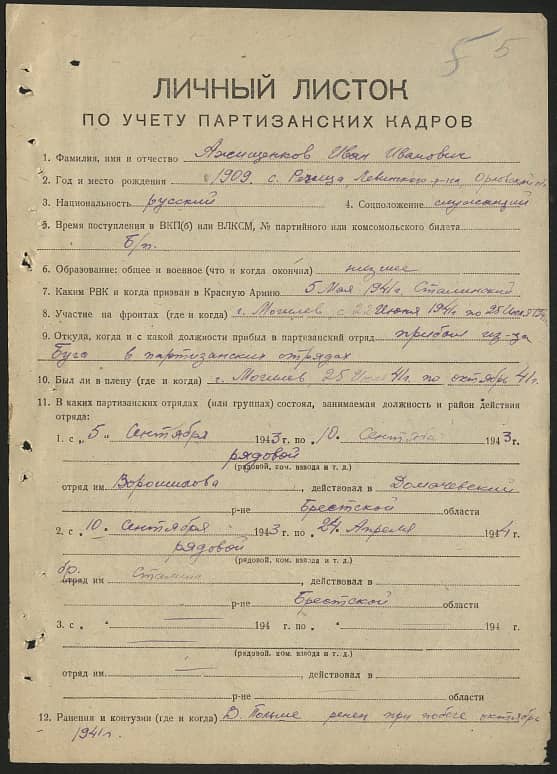 5 5
ЛИЧНЫЙ ЛИСТОК
ПО УЧЕТУ ПАРТИЗАНСКИХ КАДРОВ
1. Фамилия, имя и отчество Ажищенков Иван Иванович
2. Год и место рождения 1909 с. Речица, Ливенского р-на, Орловской
3. Национальность русский 4. Соцположение служащий
5. Время поступления в ВКП(б) или ВЛКСМ, № партийного или комсомольского билета
Б/п.
6. Образование: общее и военное (что и когда окончил) низшее
7. Каким РВК и когда призван в Красную Армию 5 Мая 1941г. Сталинский
8. Участие на фронтах (где и когда) г. Могилев с 22 Июня 1941г по 25
9. Откуда, когда и с какой должности прибыл в партизанский отряд прибыл из-за
Буга в партизанских отрядах
10. Был ли в плену (где и когда) г. Могилев 25 41г. по октябрь 41г.
11. В каких партизанских отрядах (или группах) состоял, занимаемая должность и район действия
отряда:
1. с „ 5 " Сентября 1943 г. по 10 Сентября 1943 г.
рядовой
(рядовой, ком. взвода и т. д.)
отряд им Ворошилова, действовал в Домачевский
р-не Брестской области
2. с „ 10 Сентября 1943 г. по 24 Апреля 1944 г.
рядовой
(рядовой, ком. взвода и т. д.)
бр.
отряд им Сталина, действовал в
р-не Брестской области
3. с „ " 194 г. по " 194 г.
(рядовой, ком. взвода и т. д.)
отряд им, действовал в
р-не области
12. Ранения и контузии (где и когда) В Польше ранен при побеге октябрь
1941г.